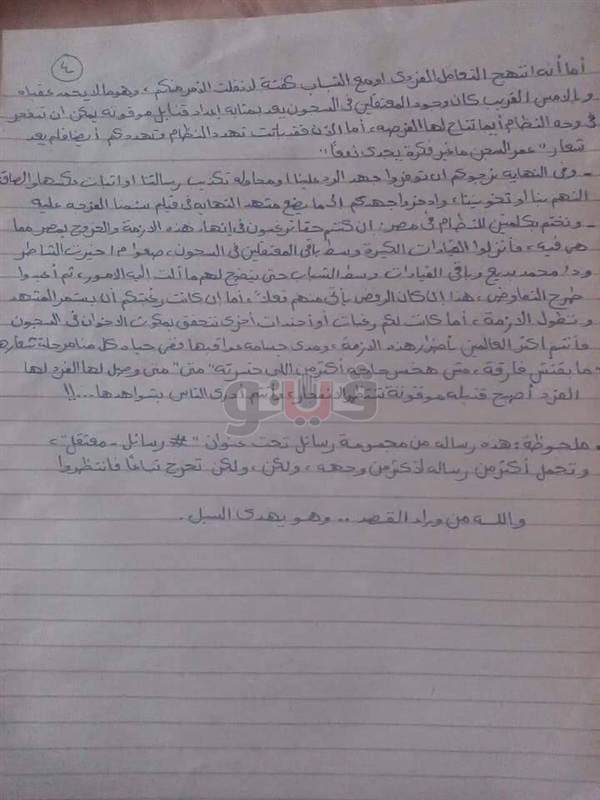 ٤
أما أنه انتهج التعامل الفردى او مع الشباب كفئة لانفلت الأمر منكم، وهو ما لا يحمد عقباه
وبالأمس القريب كان وجود المعتقلين فى السجون يعد بمثابه إعداد قنابل موقوته يمكن ان تنفجر
فى وجه النظام أينما تتاح لها الفرصه، أما الآن فقد باتت تهدد النظام وتهددكم أيضا فلم يعد
شعار "عمر السجن ما غير فكرة يجدى نفعا"
- وفى النهايه نرجوكم ان توفروا جهد الرد علينا او محاوله تكذيب رسالتنا او اثبات عكسها والصاق
التهم بنا أو تخويننا، وادخروا جهدكم الى ما يضع مشهد النهايه فى فيلم سئمنا الفرجه عليه
- ونختم بكلمتين للنظام فى مصر: ان كنتم حقا ترغبون فى إنهاء هذه الازمة والخروج بمصر مما
هى فيه، فأنزلوا القيادات الكبيرة وسط باقى المعتقلين فى السجون، ضعوا م/ خيرت الشاطر
ود/ محمد بديع وباقى القيادات وسط الشباب حتى يتضح لهم ما آلت إليه الامور، ثم أعيدوا
طرح التفاوض، هذا ان كان الرفض يأتى منهم فعلا، أما إن كانت رغبتكم أن يستمر المشهد
وتطول الازمة، أما كانت لكم رغبات أو أجندات أخرى تتحقق بمكوث الاخوان فى السجون
فأنتم أكثر العالمين بأضرار هذه الازمة، ومدى جسامه عواقبها فى حياه كل منا مرحلة شعارها
"ما بقتش فارقة، مش هخسر حاجه أكتر من اللى خسرته" متى وصل لها الفرد
الفرد أصبح قنبله موقوتة تنتظر الانفجار، وأنتم أدرى الناس بشواهدها...!!
- ملحوظة: هذه رساله من مجموعة رسائل تحت عنوان "# رسائل - معتقل"،
وتحمل أكثر من رساله لأكثر من وجهه، ولكن، ولكن تخرج تباعًا فانتظروا
والله من وراء القصد .. وهو يهدى السبل.